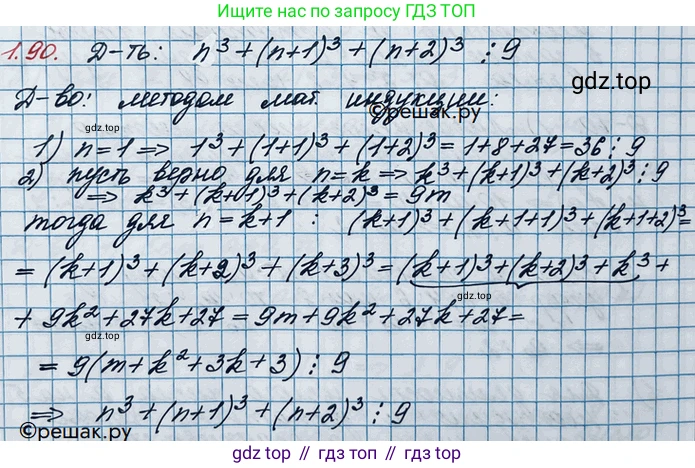 Ищи нас в поиске по запросу ГДЗ ТОП
1.90. Д-ть: n³ + (n+1)³ + (n+2)³ ⋮ 9
gdz.top
Д-во: методом мат. индукции:
gdz.top
©решак.ру
1) n=1 ⇒ 1³ + (1+1)³ + (1+2)³ = 1+8+27 = 36 ⋮ 9
2) пусть верно для n=k ⇒ k³ + (k+1)³ + (k+2)³ ⋮ 9
⇒ k³ + (k+1)³ + (k+2)³ = 9m
тогда для n=k+1 : (k+1)³ + (k+1+1)³ + (k+1+2)³ =
= (k+1)³ + (k+2)³ + (k+3)³ = (k+1)³ + (k+2)³ + k³ +
gdz.top
+ 9k² + 27k + 27 = 9m + 9k² + 27k + 27 =
= 9(m + k² + 3k + 3) ⋮ 9
⇒ n³ + (n+1)³ + (n+2)³ ⋮ 9
©решак.ру
gdz.top // gdz.top // gdz.top